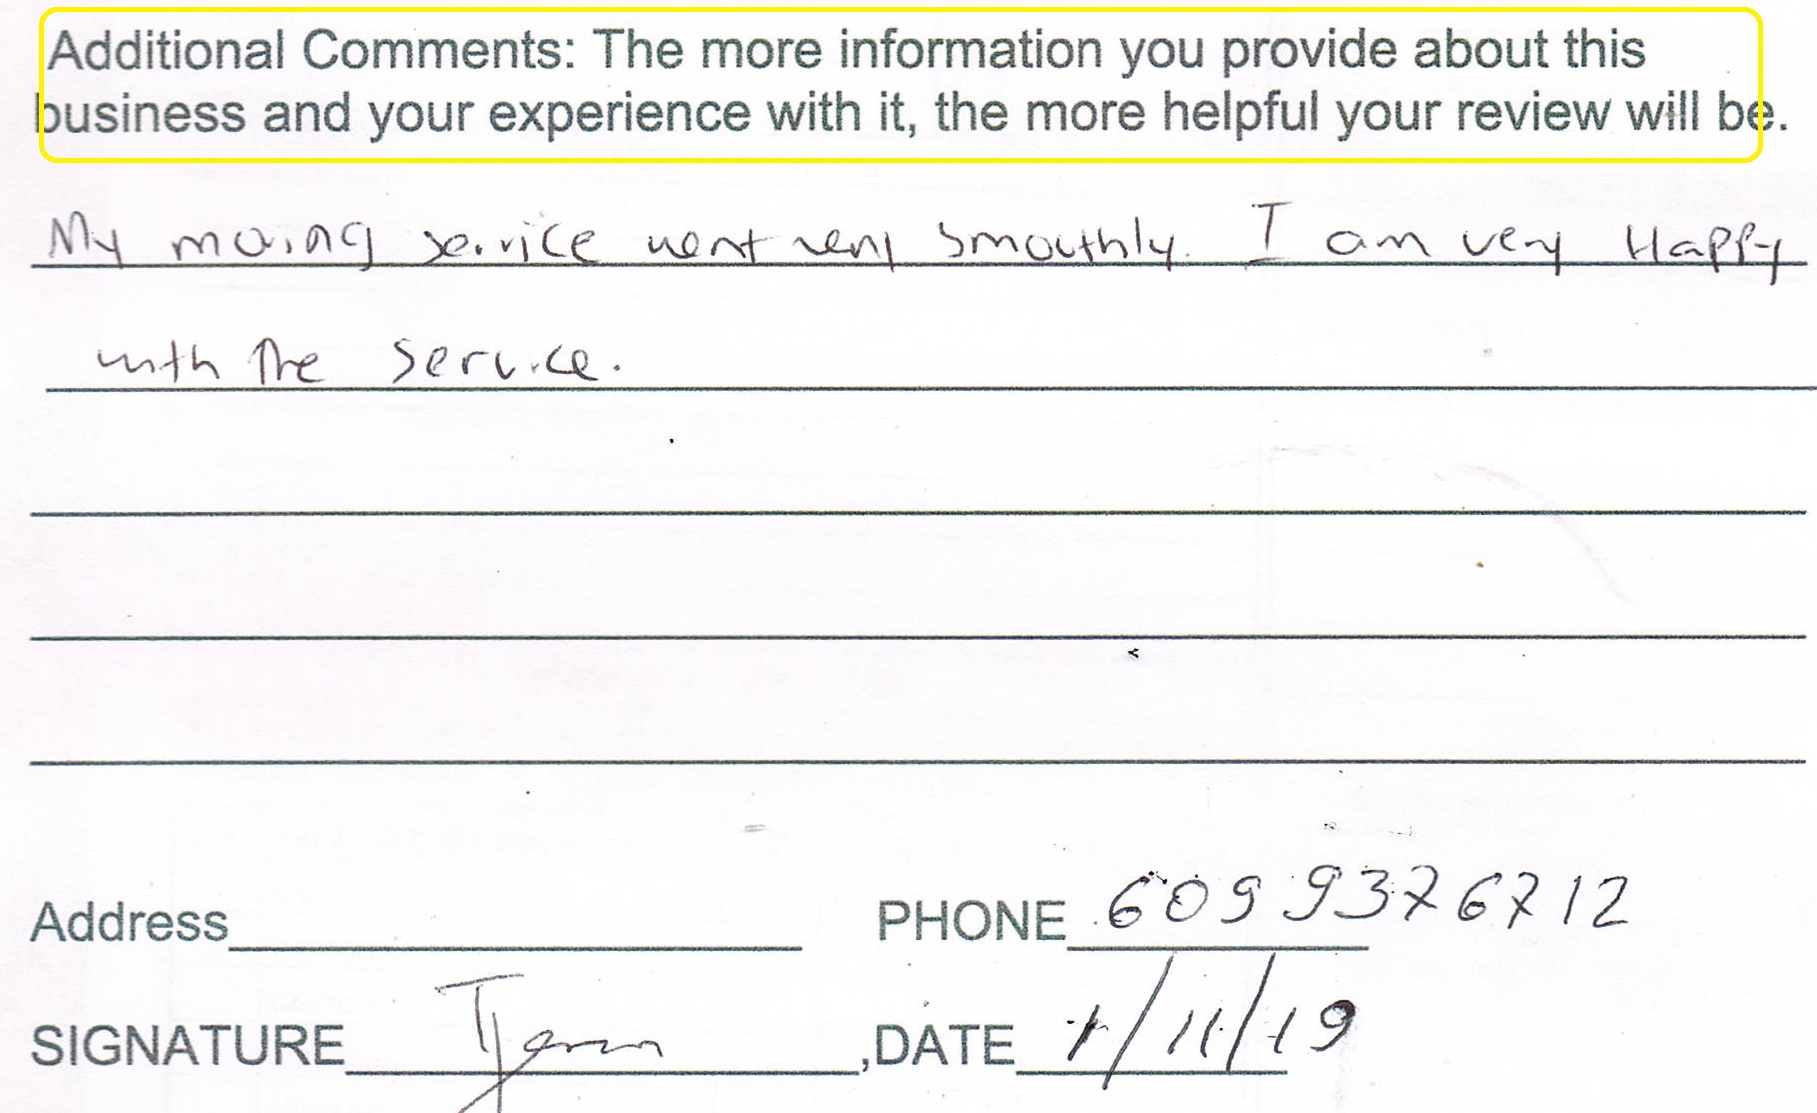 Additional Comments: The more information you provide about this
business and your experience with it, the more helpful your review will be.
My moving service went very smouthly. I am very Happy
with the service.
Address PHONE 609 9376712
SIGNATURE ,DATE 1/11/19